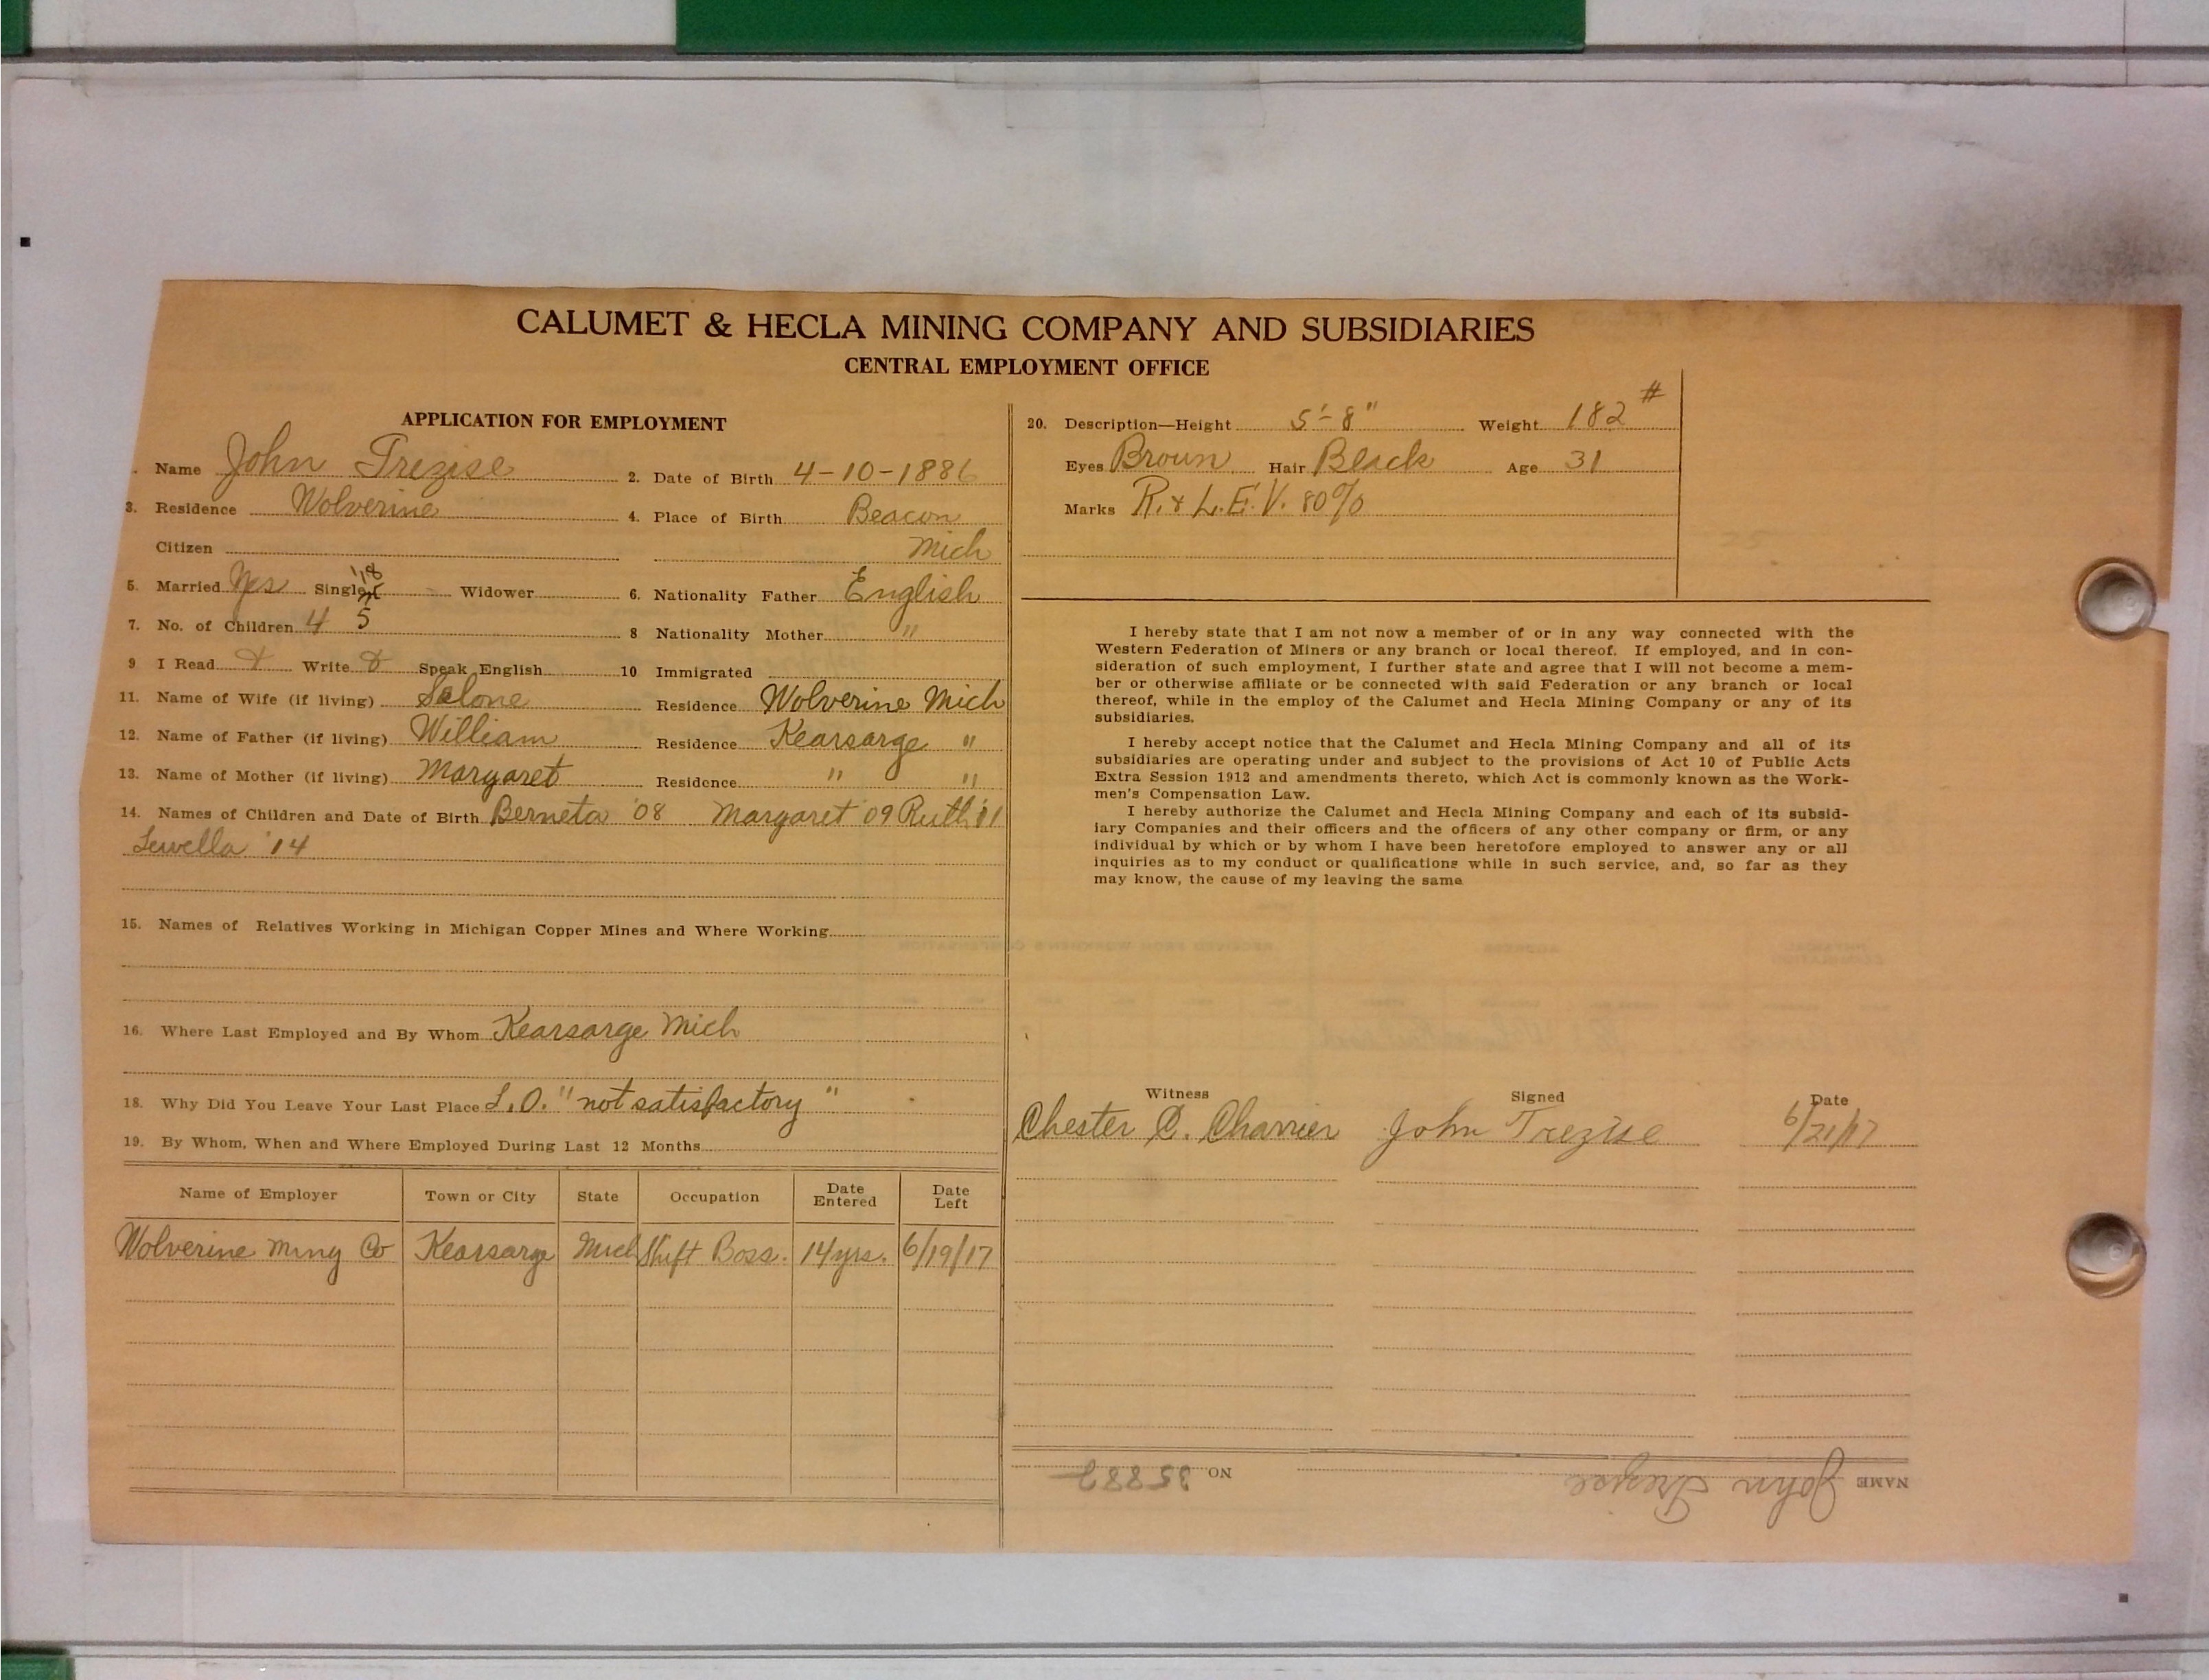 CALUMET & HECLA MINING COMPANY AND SUBSIDIARIES
CENTRAL EMPLOYMENT OFFICE
APPLICATION FOR EMPLOYMENT
. Name John Trezise 2. Date of Birth 4-10-1886
3. Residence Wolverine 4. Place of Birth Beacon
Citizen Mich
5. Married Yes Single '18 Widower 6. Nationality Father English
7. No. of Children 4 5 8 Nationality Mother "
9 I Read Write Speak English 10 Immigrated
11. Name of Wife (if living) Salone Residence Wolverine Mich
12. Name of Father (if living) William Residence Kearsarge "
13. Name of Mother (if living) Margaret Residence " "
14. Names of Children and Date of Birth Berneta '08 Margaret '09 Ruth '11
Lewella '14
15. Names of Relatives Working in Michigan Copper Mines and Where Working
16. Where Last Employed and By Whom Kearsarge Mich
18. Why Did You Leave Your Last Place L.O. "not satisfactory"
19. By Whom, When and Where Employed During Last 12 Months
Name of Employer Town or City State Occupation Date Entered Date Left
Wolverine Mng Co Kearsarge Mich Shift Boss. 14 yrs. 6/19/17
20. Description—Height 5'-8" Weight 182 #
Eyes Brown Hair Black Age 31
Marks R. & L. E. V. 80%
I hereby state that I am not now a member of or in any way connected with the
Western Federation of Miners or any branch or local thereof. If employed, and in con-
sideration of such employment, I further state and agree that I will not become a mem-
ber or otherwise affiliate or be connected with said Federation or any branch or local
thereof, while in the employ of the Calumet and Hecla Mining Company or any of its
subsidiaries.
I hereby accept notice that the Calumet and Hecla Mining Company and all of its
subsidiaries are operating under and subject to the provisions of Act 10 of Public Acts
Extra Session 1912 and amendments thereto, which Act is commonly known as the Work-
men's Compensation Law.
I hereby authorize the Calumet and Hecla Mining Company and each of its subsid-
iary Companies and their officers and the officers of any other company or firm, or any
individual by which or by whom I have been heretofore employed to answer any or all
inquiries as to my conduct or qualifications while in such service, and, so far as they
may know, the cause of my leaving the same
Witness Signed Date
Chester C. Charrier John Trezise 6/21/17
NAME John Trezise NO. 35882